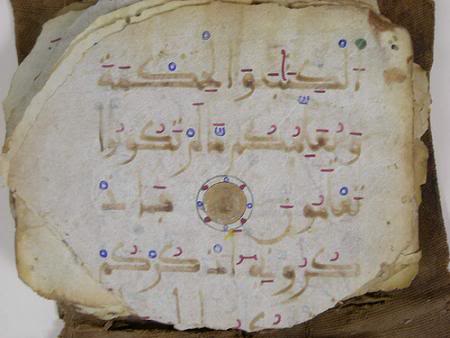 الكتب والحكمة
ويعلمكم ما لم تكونوا
تعلمون فاذ
كروني أذكركم